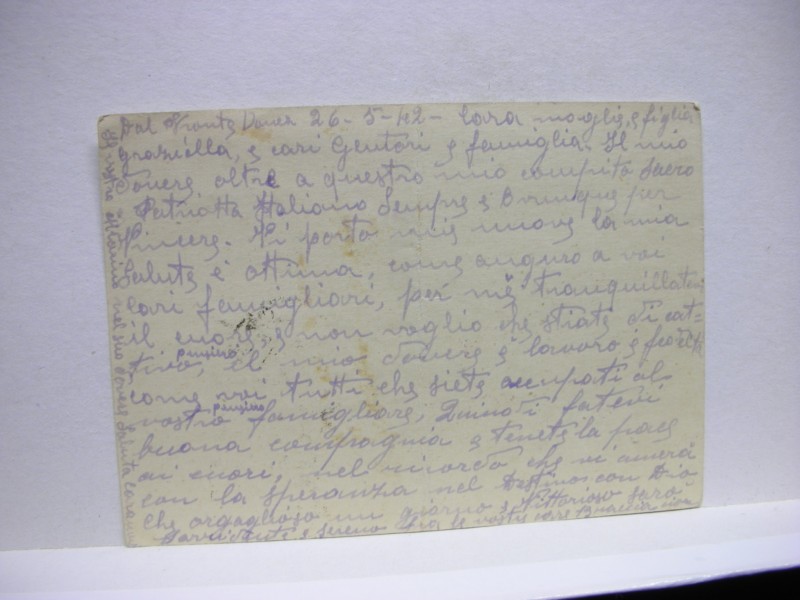 Dal Fronte 26-5-42- Cara moglie, e figlia
graziella, e cari Genitori e famiglia. Il mio
dovere oltre a questro mio compito Sacro
Patriotta Italiano Sempre e per
Vincere. Vi porto mie nuove la mia
Salute è ottima, come auguro a voi
cari famigliari, per mè tranquillatevi
il cuore, e non voglio che stiate di cat=
tivo pensiero, el mio dovere è lavoro e
come voi tutti che siete ocupati al
vostro pensiero famigliare, Quindi fatevi
buona compagnia e tenete la pace
ai cuori, nel ricordo che vi amerà
con la speranza nel Destino con Dio
che orgoglioso un giorno e Vittorioso sarò
e sereno
nel suo dovere Saluta